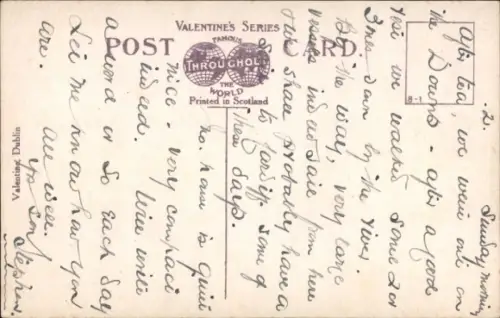 VALENTINE'S SERIES
POST CARD.
FAMOUS
THROUGHOUT
THE
WORLD
Printed in Scotland
B-1
Valentine, Dublin
2.
Sunday morning
After tea, we went out on
the Downs - after a good
rest we walked some 2 or
3 miles down by the river
By the way, very large
Vessels sail from here
Shall probably have a
Sail to some of
these days.
The house is quite
nice - very compact
indeed. Write
a word or so each day
Let me know how you
are. All well.
Yr Son
Stephen